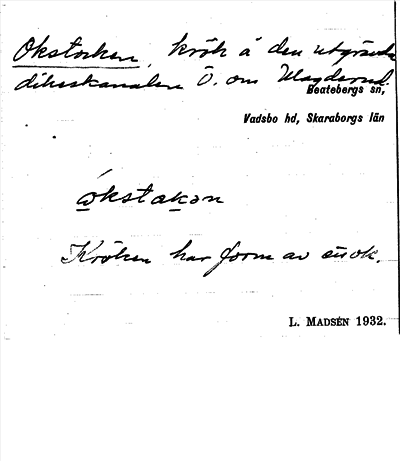 Okstocken, krök å den utgrävda
dikeskanalen Ö. om Magderud.
Beatebergs sn,
Vadsbo hd, Skaraborgs län
ωkstakən
Kröken har form av en ok.
L. MADSÉN 1932.